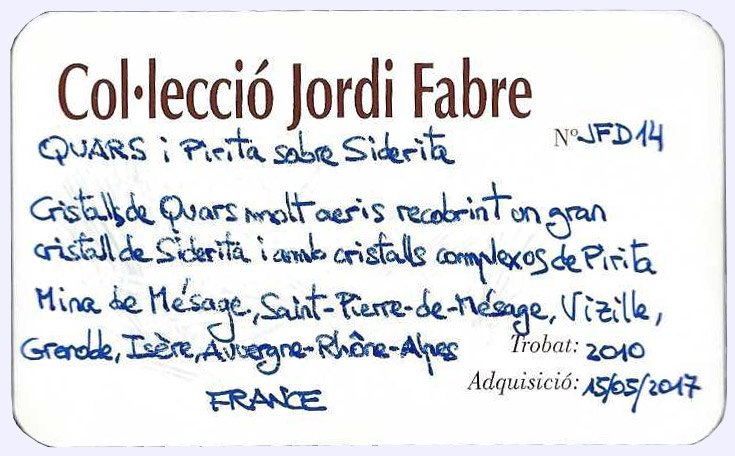 Col·lecció Jordi Fabre
Nº JFD14
QUARS i Pirita sobre Siderita
Cristalls de Quars molt aeris recobrint un gran
cristall de Siderita i amb cristalls complexos de Pirita
Mina de Mésage, Saint-Pierre-de-Mésage, Vizille,
Grenoble, Isère, Auvergne-Rhône-Alpes
Trobat: 2010
Adquisició: 15/05/2017
FRANCE